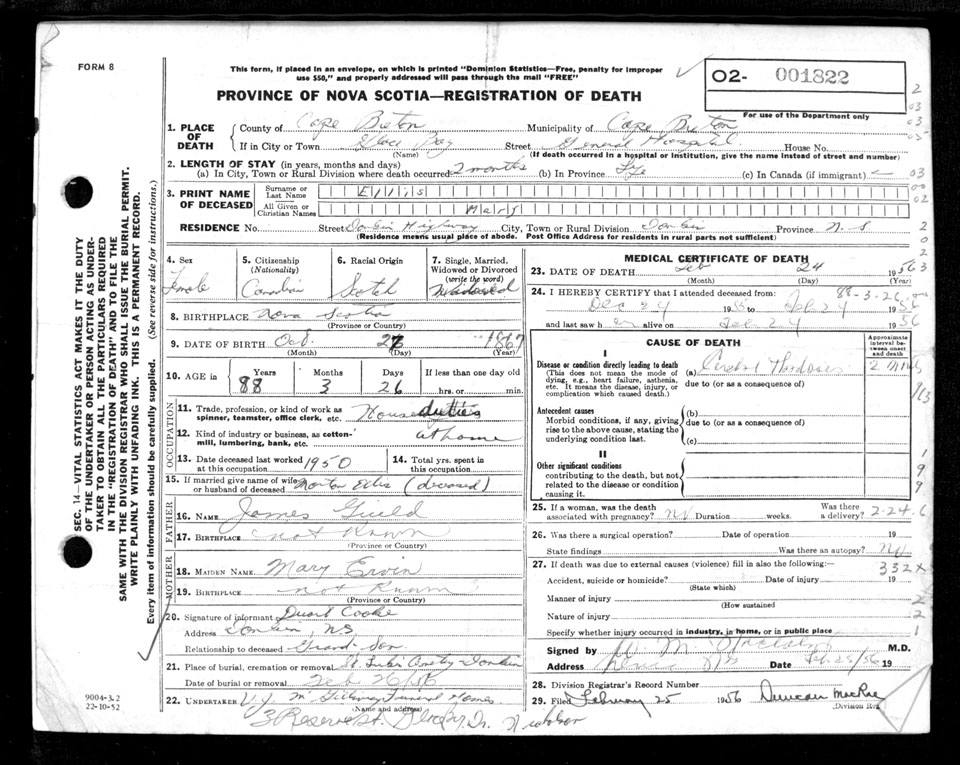 FORM 8
This form, if placed in an envelope, on which is printed "Dominion Statistics—Free, penalty for improper
use $50," and properly addressed will pass through the mail "FREE"
O2- 001822
For use of the Department only
PROVINCE OF NOVA SCOTIA—REGISTRATION OF DEATH
1. PLACE OF DEATH
County of Cape Breton Municipality of Cape Breton
If in City or Town Glace Bay Street General Hospital House No.
(Name) (If death occurred in a hospital or institution, give the name instead of street and number)
2. LENGTH OF STAY (in years, months and days)
(a) In City, Town or Rural Division where death occurred 2 months (b) In Province Life (c) In Canada (if immigrant)
3. PRINT NAME OF DECEASED
Surname or Last Name Ellis
All Given or Christian Names Mary
RESIDENCE No. Street Donkin Highway City, Town or Rural Division Donkin Province N.S
(Residence means usual place of abode. Post Office Address for residents in rural parts not sufficient)
4. Sex Female
5. Citizenship (Nationality) Canadian
6. Racial Origin Scotch
7. Single, Married, Widowed or Divorced (write the word) Widowed
8. BIRTHPLACE Nova Scotia
(Province or Country)
9. DATE OF BIRTH Oct. 27 1867
(Month) (Day) (Year)
10. AGE in Years 88 Months 3 Days 26 If less than one day old hrs. or min.
OCCUPATION
11. Trade, profession, or kind of work as spinner, teamster, office clerk, etc. House duties
12. Kind of industry or business, as cotton-mill, lumbering, bank, etc. at home
13. Date deceased last worked at this occupation 1950
14. Total yrs. spent in this occupation
15. If married give name of wife or husband of deceased Norton Ellis (deceased)
FATHER
16. NAME James Guild
17. BIRTHPLACE not Known
(Province or Country)
MOTHER
18. MAIDEN NAME Mary Ervin
19. BIRTHPLACE not Known
(Province or Country)
20. Signature of informant Cooke
Address Donkin, N.S
Relationship to deceased Grand-Son
21. Place of burial, cremation or removal St. Donkin
Date of burial or removal Feb
22. UNDERTAKER V.J. McGillivray Funeral Homes
(Name and address)
3 Reserve St. Glace Bay
MEDICAL CERTIFICATE OF DEATH
23. DATE OF DEATH Feb 24 1956
(Month) (Day) (Year)
24. I HEREBY CERTIFY that I attended deceased from: 88-3-26
Dec 24 195 to Feb 24 1956
and last saw her alive on Feb 24 1956
CAUSE OF DEATH
Approximate interval between onset and death
I
Disease or condition directly leading to death (a) Cerebral Thrombosis 2 mths
(This does not mean the mode of dying, e.g., heart failure, asthenia, etc. It means the disease, injury, or complication which caused death.)
due to (or as a consequence of)
Antecedent causes
Morbid conditions, if any, giving rise to the above cause, stating the underlying condition last.
(b)
due to (or as a consequence of)
(c)
II
Other significant conditions
contributing to the death, but not related to the disease or condition causing it.
25. If a woman, was the death associated with pregnancy? No Duration weeks. Was there a delivery? 2-24-6
26. Was there a surgical operation? Date of operation 19
State findings Was there an autopsy? No
27. If death was due to external causes (violence) fill in also the following: 332X
Accident, suicide or homicide? Date of injury 19
(State which)
Manner of injury
(How sustained
Nature of injury
Specify whether injury occurred in industry, in home, or in public place
Signed by M.D.
Address Date Feb 25/56 19
28. Division Registrar's Record Number
29. Filed February 25 1956 Duncan MacRae
Division Reg
SEC. 14—VITAL STATISTICS ACT MAKES IT THE DUTY
OF THE UNDERTAKER OR PERSON ACTING AS UNDER-
TAKER TO OBTAIN ALL THE PARTICULARS REQUIRED
IN THE "REGISTRATION OF DEATH" AND TO FILE THE
SAME WITH THE DIVISION REGISTRAR WHO SHALL ISSUE THE BURIAL PERMIT.
WRITE PLAINLY WITH UNFADING INK. THIS IS A PERMANENT RECORD.
Every item of information should be carefully supplied. (See reverse side for instructions.)
9004-3.2
22-10-52